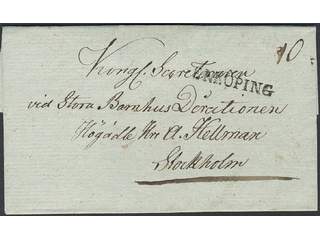 10
Kongl. Secreteraren
NKÖPING
vid Stora Barnhus Direktionen
Högädle Hr A. Hellman
Stockholm